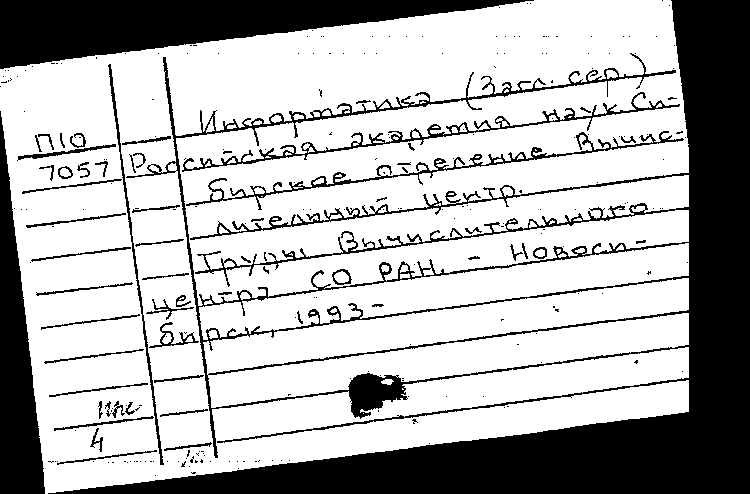 Информатика (Загл. сер.)
П10
7057 Российская академия наук. Си-
бирское отделение. Вычис-
лительный центр.
Труды Вычислительного
центра СО РАН. - Новоси-
бирск, 1993-
4